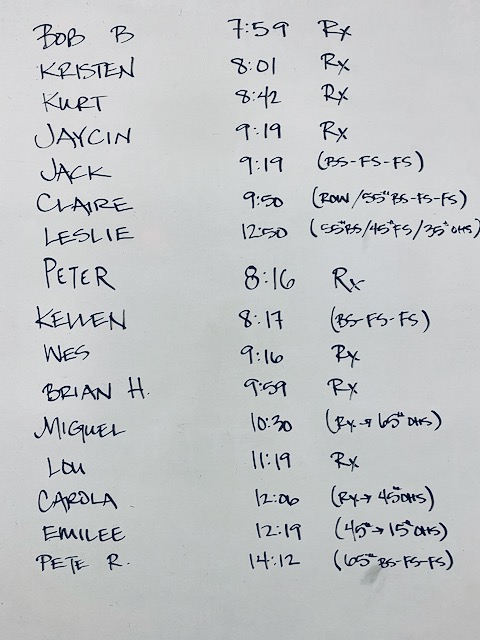 BOB B 7:59 Rx
KRISTEN 8:01 Rx
KURT 8:42 Rx
JAYCIN 9:19 Rx
JACK 9:19 (BS-FS-FS)
CLAIRE 9:50 (ROW/55# BS-FS-FS)
LESLIE 12:50 (55#BS/45#FS/35# OHS)
PETER 8:16 Rx
KELLEN 8:17 (BS-FS-FS)
WES 9:16 Rx
BRIAN H. 9:59 Rx
MIGUEL 10:30 (Rx→65# OHS)
LOU 11:19 Rx
CAROLA 12:06 (Rx→45#OHS)
EMILEE 12:19 (45#→15# OHS)
PETE R. 14:12 (65# BS-FS-FS)